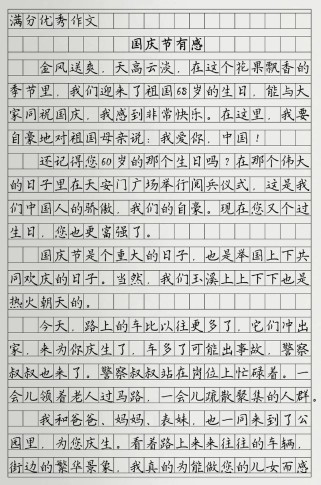 满分优秀作文
国庆节有感
金风送爽，天高云淡，在这个花果飘香的
季节里，我们迎来了祖国68岁的生日，能与大
家同祝国庆，我感到非常快乐。在这里，我要
自豪地对祖国母亲说：我爱你，中国！
还记得您60岁的那个生日吗？在那个伟大
的日子里在天安门广场举行阅兵仪式，这是我
们中国人的骄傲，我们的自豪。现在您又个过
生日，您也更富强了。
国庆节是个重大的日子，也是举国上下共
同欢庆的日子。当然，我们玉溪上上下下也是
热火朝天的。
今天，路上的车比以往更多了，它们冲出
家，来为你庆生了，车多了可能出事故，警察
叔叔也来了。警察叔叔站在岗位上忙碌着。一
会儿领着老人过马路，一会儿疏散聚集的人群。
我和爸爸、妈妈、表妹，也一同来到了公
园里，为您庆生。看着路上来来往往的车辆，
街边的繁华景象，我真的为能做您的儿女而感